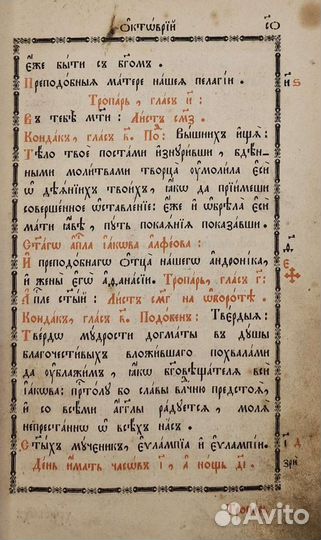 Октѡврїй о҃
Є҆́же бы́ти съ бг҃омъ.
Преподо́бныѧ ма́тере на́шеѧ пелагі́и.
И҃
Тропа́рь, гла́съ и҃:
Въ тебѣ̀ мт҃и: Ли́стъ смз.
Конда́къ, гла́съ в҃. По:
Вы́шнихъ и҆щѧ̀:
Тѣ́ло твоѐ поста́ми и҆знꙋри́вши, бдѣ́н-
ными моли́твами творца̀ ᲂу҆моли́ла є҆сѝ
ѡ҆ дѣѧ́нїихъ твои́хъ, ꙗ҆́кѡ да прїи́меши
соверше́нное ѡ҆ставле́нїе: є҆́же и҆ ѡ҆брѣ́ла є҆сѝ
ма́ти ꙗ҆́вѣ, пꙋ́ть покаѧ́нїѧ показа́вши.
Ст҃а́гѡ а҆п҃ла і҆а́кѡва а҆лфе́ова:
И҆ преподо́бнагѡ ѻ҆тца̀ на́шегѡ а҆ндро́нїка,
и҆ жены̀ є҆гѡ̀ а҆ѳана́сїи. Тропа́рь, гла́съ г҃:
А҆п҃ле ст҃ы́й: Ли́стъ смг на ѡ҆боро́тѣ.
Конда́къ, гла́съ в҃. Подо́бенъ: Тве́рдыѧ:
Тве́рдѡ мꙋ́дрости до́гматы въ дꙋ́шы
благочести́выхъ вложи́вшаго похвала́ми
да ᲂу҆блажи́мъ, ꙗ҆́кѡ бг҃овѣща́телѧ всѝ
і҆а́кѡва: прⷭ҇то́лꙋ бо сла́вы влⷣчню предстоѧ̀,
и҆ со всѣ́ми а҆́гг҃лы ра́дꙋетсѧ, молѧ̀
непреста́ннѡ ѡ҆ всѣ́хъ на́съ.
Ст҃ы́хъ мꙋ́ченикъ, є҆ѵла́мпїа и҆ є҆ѵлампі́и.
І҃
Де́нь и҆́мать часѡ́въ і҃, а҆ но́щь д҃і.
зрѝ
Avito